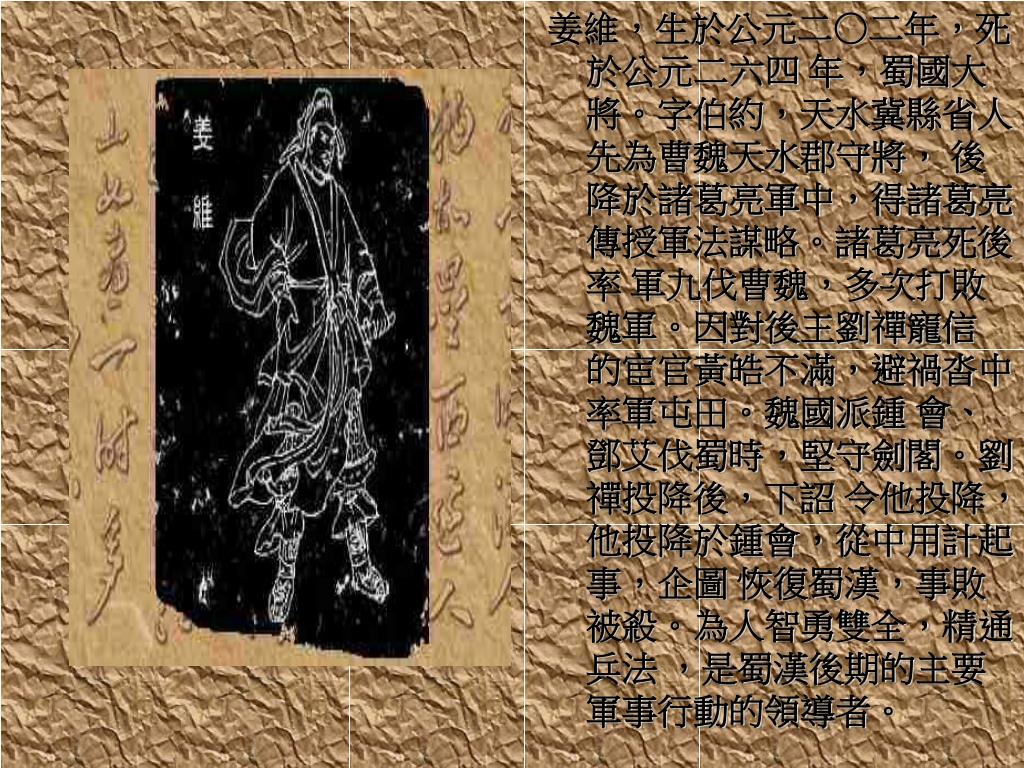 姜維，生於公元二〇二年，死
於公元二六四 年，蜀國大
將。字伯約，天水冀縣省人
先為曹魏天水郡守將， 後
降於諸葛亮軍中，得諸葛亮
傳授軍法謀略。諸葛亮死後
率 軍九伐曹魏，多次打敗
魏軍。因對後主劉禪寵信
的宦官黃皓不滿，避禍沓中
率軍屯田。魏國派鍾 會、
鄧艾伐蜀時，堅守劍閣。劉
禪投降後，下詔 令他投降，
他投降於鍾會，從中用計起
事，企圖 恢復蜀漢，事敗
被殺。為人智勇雙全，精通
兵法 ，是蜀漢後期的主要
軍事行動的領導者。
姜維